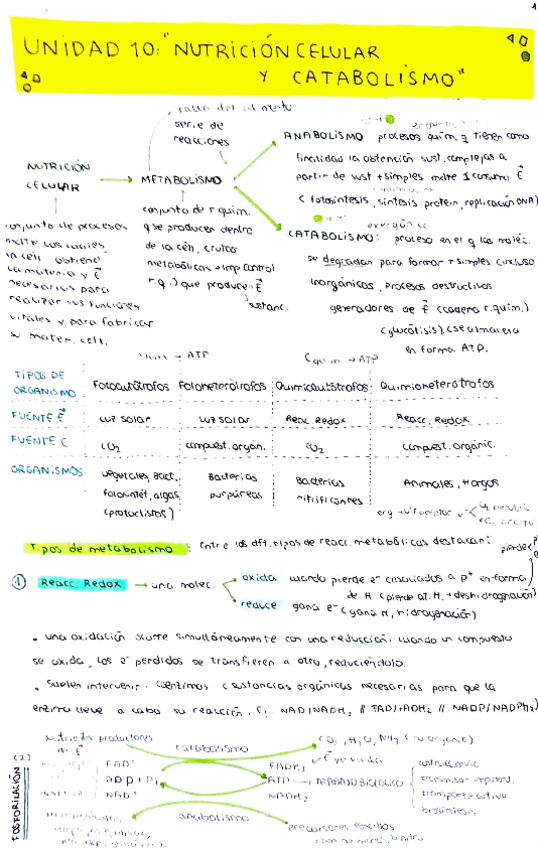 1
UNIDAD 10: "NUTRICIÓN CELULAR
Y CATABOLISMO"
serie de
reacciones
endergónico
ANABOLISMO procesos quím. q tienen como
finalidad la obtención sust. complejas a
partir de sust + simples mdte 1 consumo E
(fotosíntesis, síntesis protein, replicación DNA)
NUTRICIÓN
CELULAR
METABOLISMO
exergónico
CATABOLISMO: proceso en el q las moléc.
se degradan para formar + simples (incluso
inorgánicas, procesos destructivos
generadores de E (cadena r. quím.)
(glucólisis). (se almacena
en forma ATP.
conjunto de procesos
mdte los cuales
la cél. obtiene
la materia y E
necesarias para
realizar sus funciones
vitales y para fabricar
su mater. cel.
conjunto de r. quím.
q se producen dentro
de la cél. (rutas
metabólicas → imp control
r.q.) que producen E
sustanc.
→ ATP
E quím → ATP
TIPOS DE
ORGANISMO
Fotoautótrofos Fotoheterótrofos Quimioautótrofos Quimioheterótrofos
FUENTE E luz solar luz solar Reac. Redox Reacc. Redox
FUENTE C CO2 compuest. orgán. CO2 compuest. orgánic.
ORGANISMOS vegetales, bact. Bacterias Bacterias Animales, Hongos
fotosintét., algas purpúreas nitrificantes
(protoctistos)
Tipos de metabolismo: Entre los dft. tipos de reacc. metabólicas destacan:
pierde
① Reacc. Redox → una molec. oxida cuando pierde e- (asociados a p+ en forma
de H (pierde at. H. → deshidrogenación)
reduce gana e- (gana H, hidrogenación)
• una oxidación ocurre simultáneamente con una reducción. cuando un compuesto
se oxida, los e- perdidos se transfieren a otro, reduciéndolo.
• Suelen intervenir: coenzimas (sustancias orgánicas necesarias para que la
enzima lleve a cabo su reacción. Ej. NAD/NADH2 // FAD/FADH2 // NADP/NADPH2)
(2)
FOSFORILACIÓN
catabolismo
CO2, H2O, NH3 (inorgánic)
FAD+
FADH2
ADP + Pi
ATP → TRABAJO BIOLÓGICO
NAD+
NADH2
transporte activo
biosíntesis
anabolismo
precursores sencillos